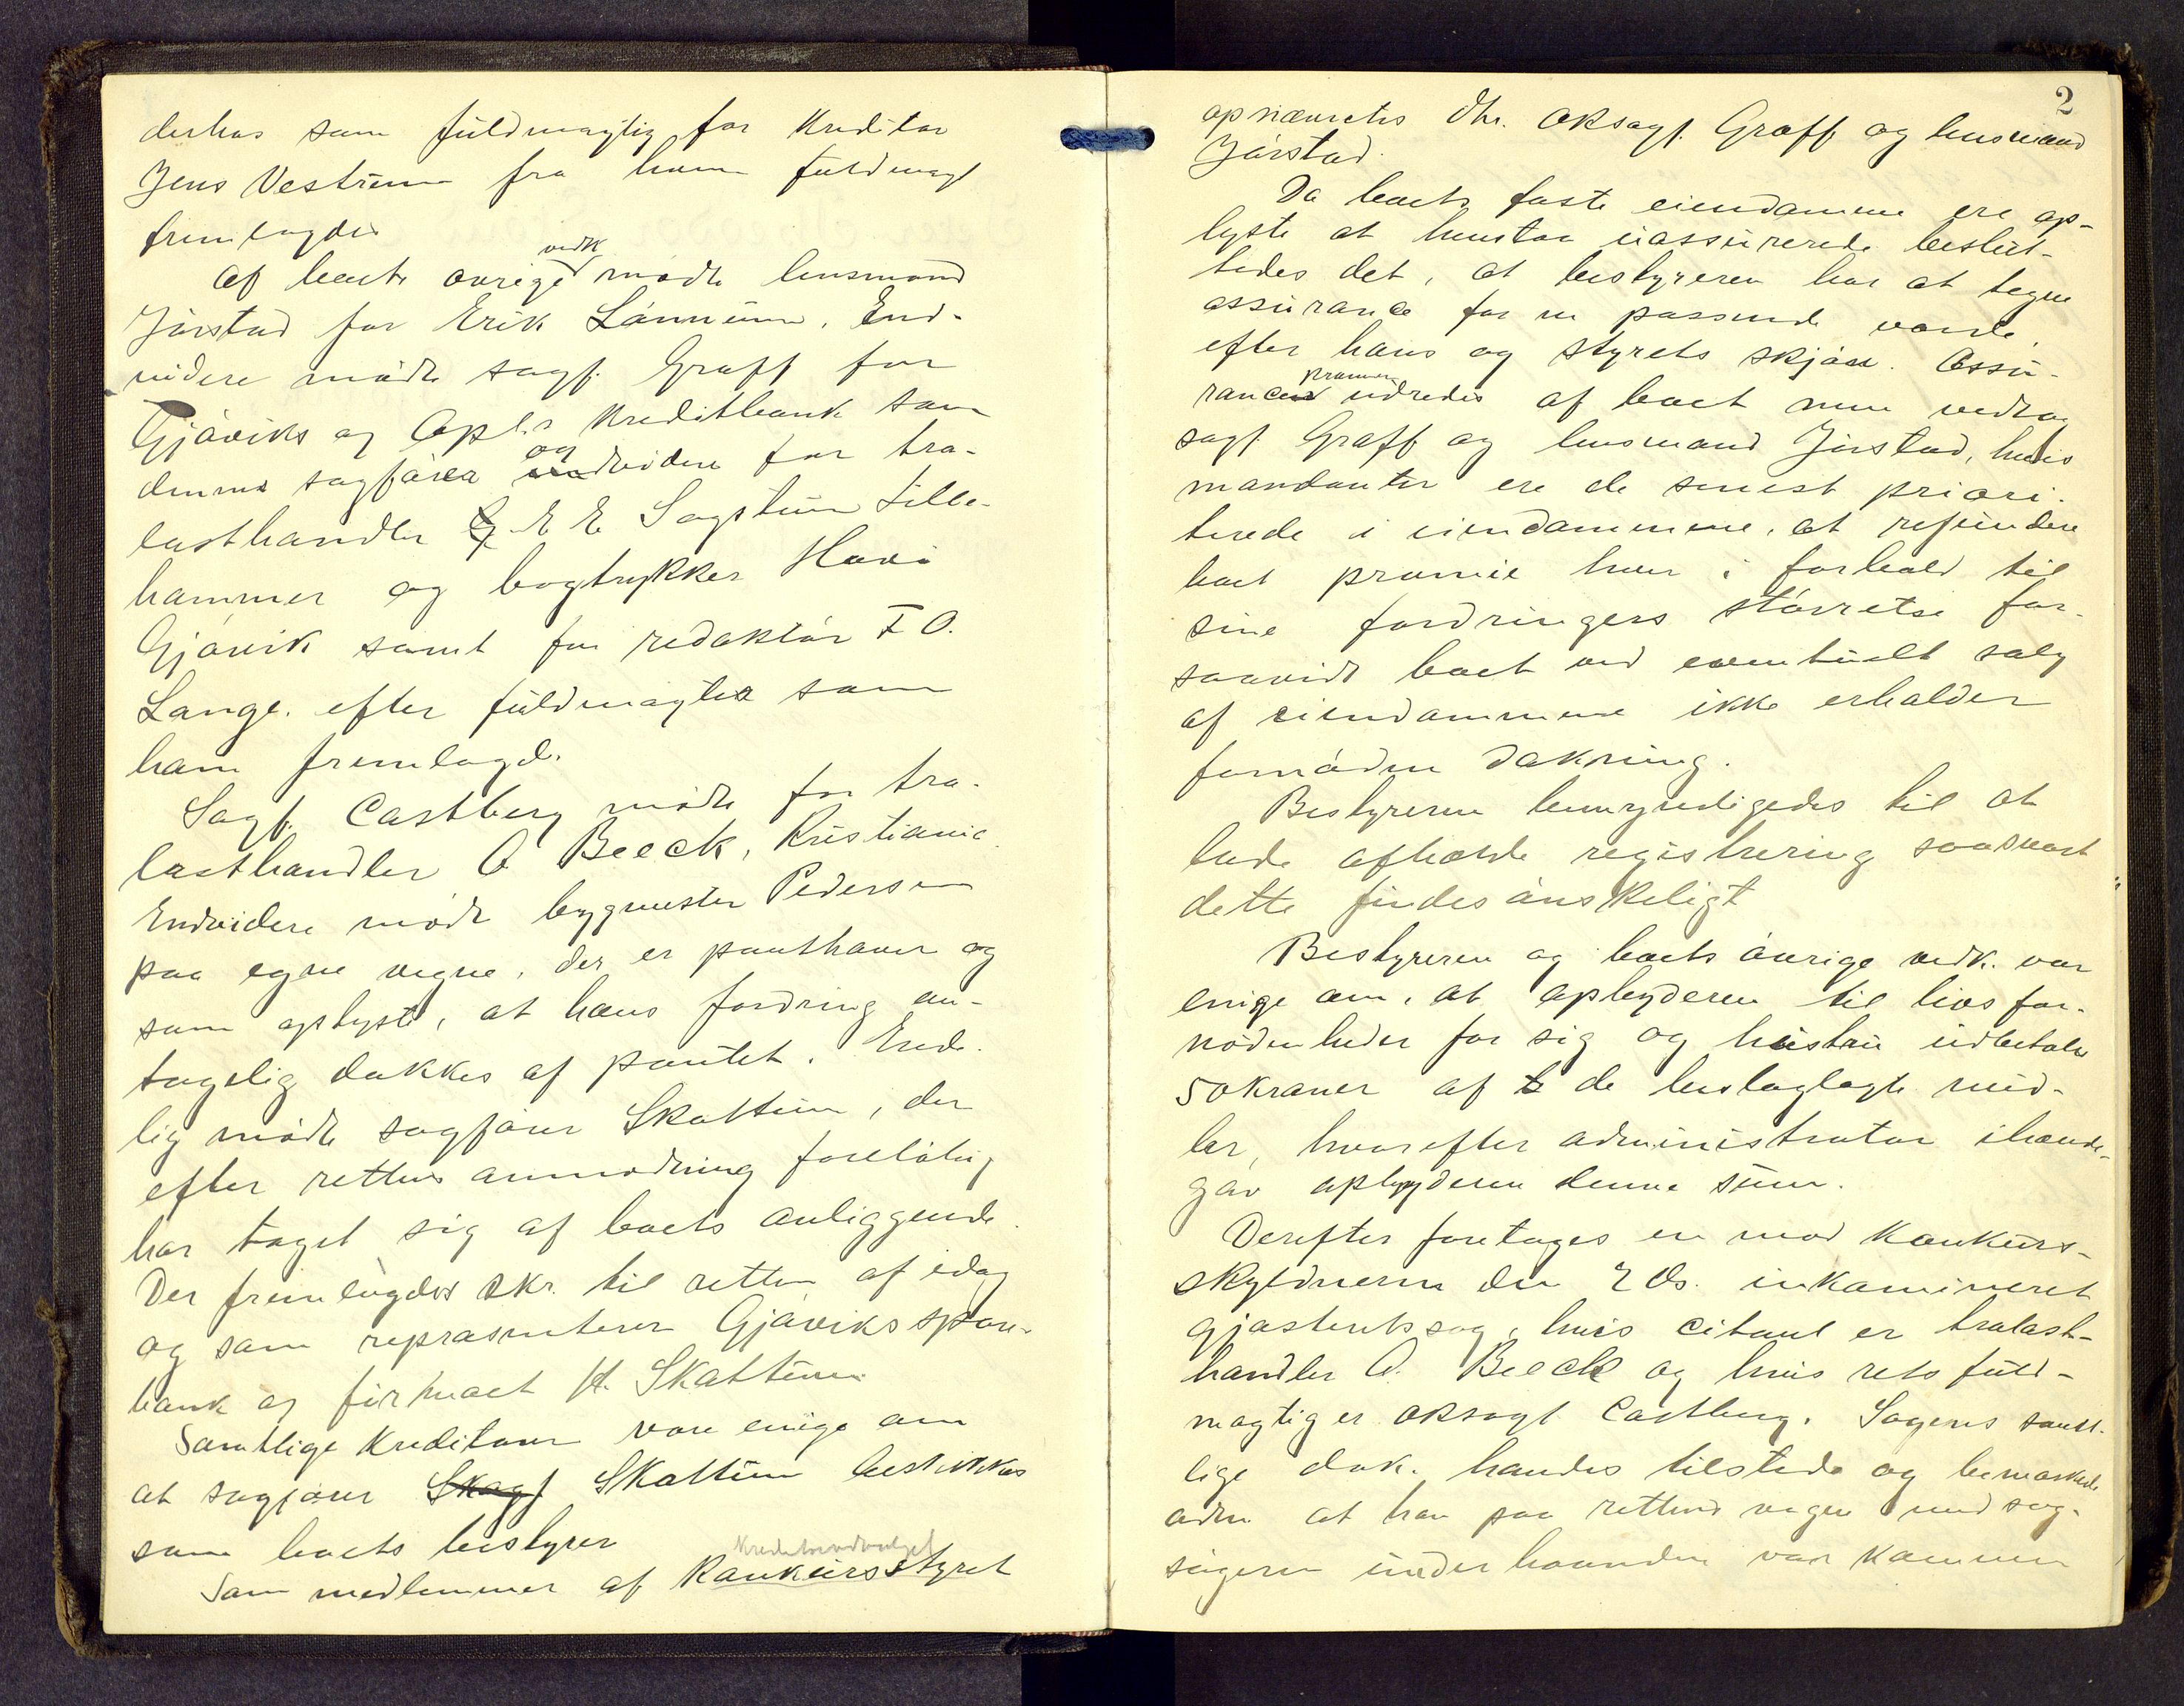 derhos som fuldmægtig for Kreditor
Jens Vestrum fra ham fuldmagt
fremlagdes
Af boets øvrige vedk mødte lensmand
Jørstad for Erik Lønnum. End-
videre mødte sagf. Graff for
Gjøviks og Opl.s Kreditbank som
dennes sagfører og videre for tra-
lasthandler E E Sagstuen Lille-
hammer og bogtrykker Hovi
Gjøvik samt for redaktør F O.
Lange. efter fuldmagter som
ham fremlagde.
Sagf. Castberg mødte for tra-
lasthandler O Beeck, Kristiania.
Endvidere mødte bygmester Pedersen
paa egne vegne, der er panthaver og
som oplyste, at hans fordring an-
tagelig dækkes af pantet. Ende-
lig mødte sagfører Skattum, der
efter rettens anmodning foreløbig
har taget sig af boets anliggende.
Der fremlagdes skr. til retten af idag
og som repræsenterer Gjøviks spare-
bank og firmaet H. Skattum
Samtlige Kreditorer vare enige om
at sagfører Skagf Skattum beskikkes
som boets bestyrer
Kreditorudvalget
Som medlemmer af Konkursstyret
2
opnævntes Dhr. Oksagf. Graff og lensmand
Jørstad.
Da boets faste eiendomme ere op-
lyste at henstaa uassurerede beslut-
tedes det, at bestyreren har at tegne
assurance for en passende værdi,
efter hans og styrets skjøn. Assu-
rancepræmien udredes af boet men vedtog
sagf. Graff og lensmand Jørstad, hvis
mandanter ere de senest priori-
terede i eiendommene, at refundere
boet præmie hver i forhold til
sine fordringers størrelse for-
saavidt boet ved eventuelt salg
af eiendommene ikke erholder
fornøden dækning.
Bestyreren bemyndigedes til at
lade afholde registrering saasnart
dette findes ønskeligt
Bestyreren og boets øvrige vedk. var
enige om, at opbyderen til livsfor-
nødenheder for sig og hustru udbetales
50 kroner af de beslaglagte mid-
ler, hvorefter administrator ihænde-
gav opbyderen denne sum.
Derefter foretages en mod Konkurs-
skyldneren den 2 ds. inkamineret
gjæsteretssag, hvis citant er trælast-
handler O. Beeck og hvis retsfuld-
mægtig er oksagf. Castberg. Sagens samt-
lige dok. havdes tilstede og bemærkede
adm at han paa rettens vegne med sag-
søgeren underhaanden var kommen